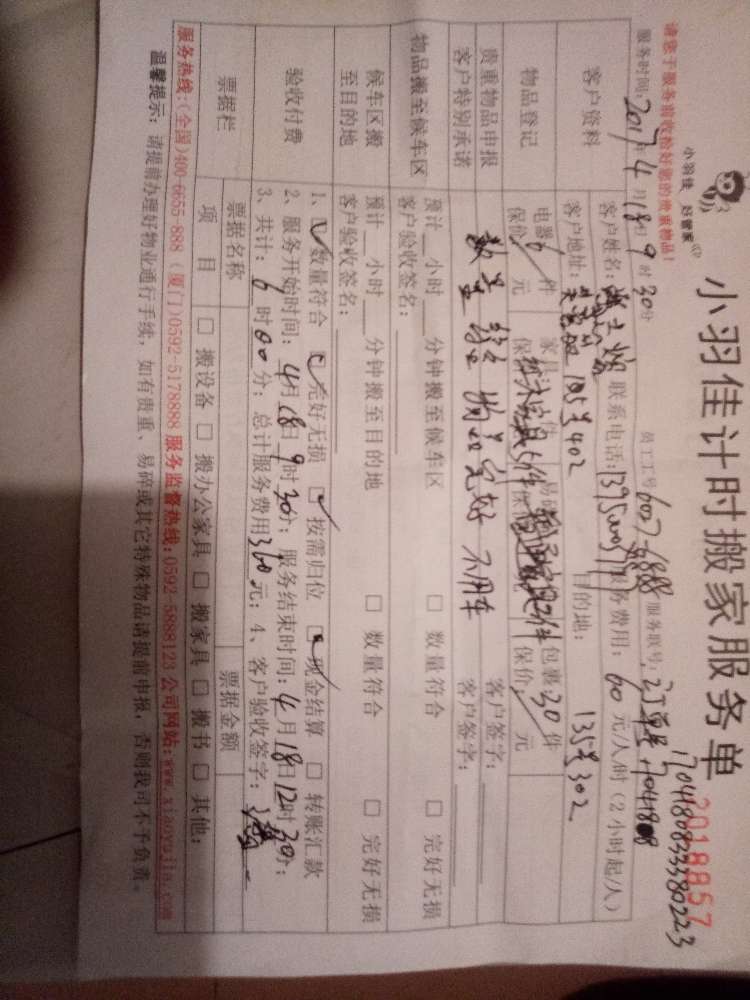 小羽佳 好管家
小羽佳计时搬家服务单
2018857
请您于服务前收检好您的贵重物品！
服务时间：2017年4月18日9时30分 员工工号 6027-6888 服务联号：
客户资料
客户姓名： 联系电话： 服务费用：60元/人/时（2小时起/人）
客户地址： 185号402 目的地： 135号302
物品登记
电器6件 家具 件 易碎 包裹30件
保价 元 保价 保价 保价 元
贵重物品申报 客户签字：
客户特别承诺 数量 物品完好 不用车 客户签字：
物品搬至候车区
预计 小时 分钟搬至候车区 □ 数量符合 □ 完好无损
客户验收签名：
候车区搬至目的地
预计 小时 分钟搬至目的地 □ 数量符合 □ 完好无损
客户验收签名：
验收付费
1、☑数量符合 ☑完好无损 ☑按需归位 ☑现金结算 □ 转账汇款
2、服务开始时间：4月18日9时30分；服务结束时间：4月18日12时30分；
3、共计：6时00分；总计服务费用360元；4、客户验收签字：
票据栏
票据名称 票据金额
项目 □ 搬设备 □ 搬办公家具 □ 搬家具 □ 搬书 □ 其他：
服务热线：(全国)400-6655-888 (厦门)0592-5178888 服务监督热线：0592-5888123 公司网站：www.xiaoyujia.com
温馨提示：请提前办理好物业通行手续，如有贵重、易碎或其它特殊物品请提前申报，否则我司不予负责。